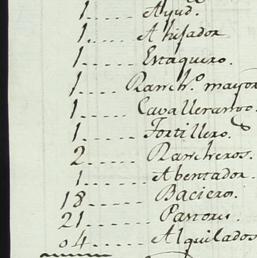 1 ..... Ayud.
1 ..... Ahijador
1 ..... Estaquero.
1 ..... Ranch.º mayor
1 ..... Cavallerango.
1 ..... Tortillero.
2 ..... Rancheros.
1 ..... Abentador.
18 ..... Baciero.
21 ..... Pastores
04 ..... Alquilados